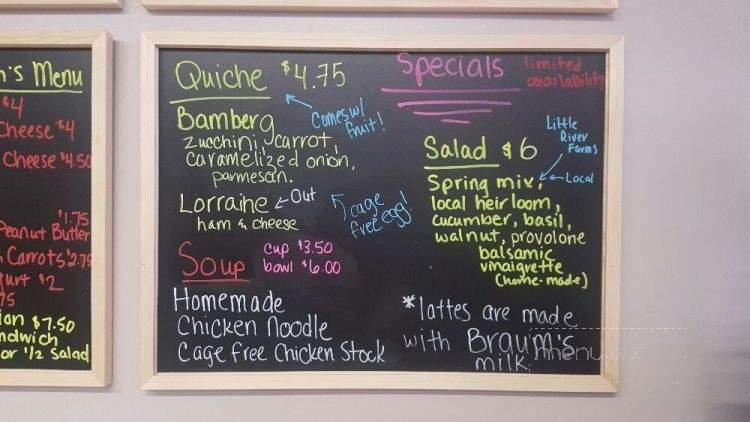 n's Menu
$4
Cheese $4
Cheese $4.50
$1.75
Peanut Butter
Carrots $2.75
gurt $2
75
$7.50
ndwich
or 1/2 Salad
Quiche $4.75
comes w/
fruit!
Bamberg
zucchini, carrot,
caramelized onion,
parmesan.
Lorraine ← Out
ham & cheese
cage
free egg!
Soup
cup $3.50
bowl $6.00
Homemade
Chicken Noodle
Cage Free Chicken Stock
Specials
limited
availability
Little
River
Farms
Salad $6
Spring mix, ← Local
local heirloom,
cucumber, basil,
walnut, provolone
balsamic
vinaigrette
(home-made)
*lattes are made
with Braum's
milk.